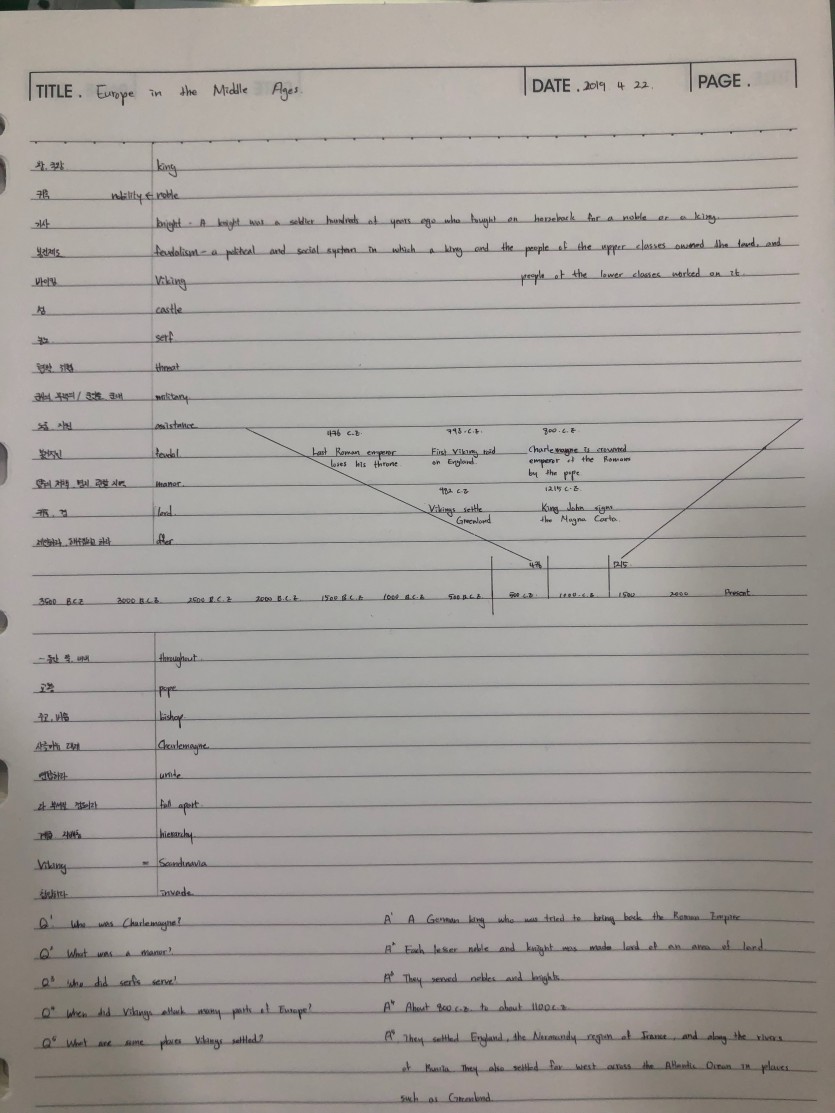 TITLE. Europe in the Middle Ages. DATE. 2019 4 22. PAGE.
왕, 국왕 king
귀족 nobility ← noble
기사 knight - A knight was a soldier hundreds of years ago who fought on horseback for a noble or a king.
봉건제도 feudalism - a political and social system in which a king and the people of the upper classes owned the land, and
바이킹 Viking people of the lower classes worked on it.
성 castle
농노 serf
협박, 위협 threat
military
도움, 지원 assistance 476 C.E 793 C.E. 800 C.E
봉건적인 feudal Last Roman emperor First Viking raid Charlemagne is crowned
loses his throne on England. emperor of the Romans
by the pope
manor 982 C.E 1215 C.E.
귀족, 경 lord Vikings settle King John signs
Greenland the Magna Carta.
offer
476 1215
3500 B.C.E 3000 B.C.E 2500 B.C.E 2000 B.C.E 1500 B.C.E 1000 B.C.E 500 B.C.E 500 C.E. 1000 C.E 1500 2000 Present
throughout
교황 pope
주교 bishop
Charlemagne
연합하다 unite
fall apart
hierarchy
Viking = Scandinavia
침입하다 invade
Q¹ Who was Charlemagne? A¹ A German king who was tried to being back the Roman Empire
Q² What was a manor? A² Each lesser noble and knight was made lord of an area of land
Q³ Who did serfs serve? A³ They served nobles and knights.
Q⁴ When did Vikings attack many parts of Europe? A⁴ About 800 C.E. to about 1100 C.E
Q⁵ What are some places Vikings settled? A⁵ They settled England, the Normandy region of France, and along the rivers
of Russia. They also settled far west across the Atlantic Ocean in places
such as Greenland.